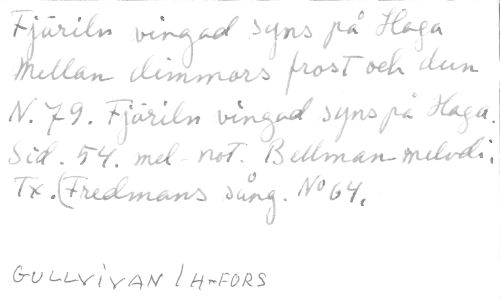 Fjäriln vingad syns på Haga
mellan dimmors frost och dun
N. 79. Fjäriln vingad syns på Haga.
Sid. 54. mel-not. Bellman-melodi.
Tx. (Fredmans sång. No 64.
GULLVIVAN / H-FORS